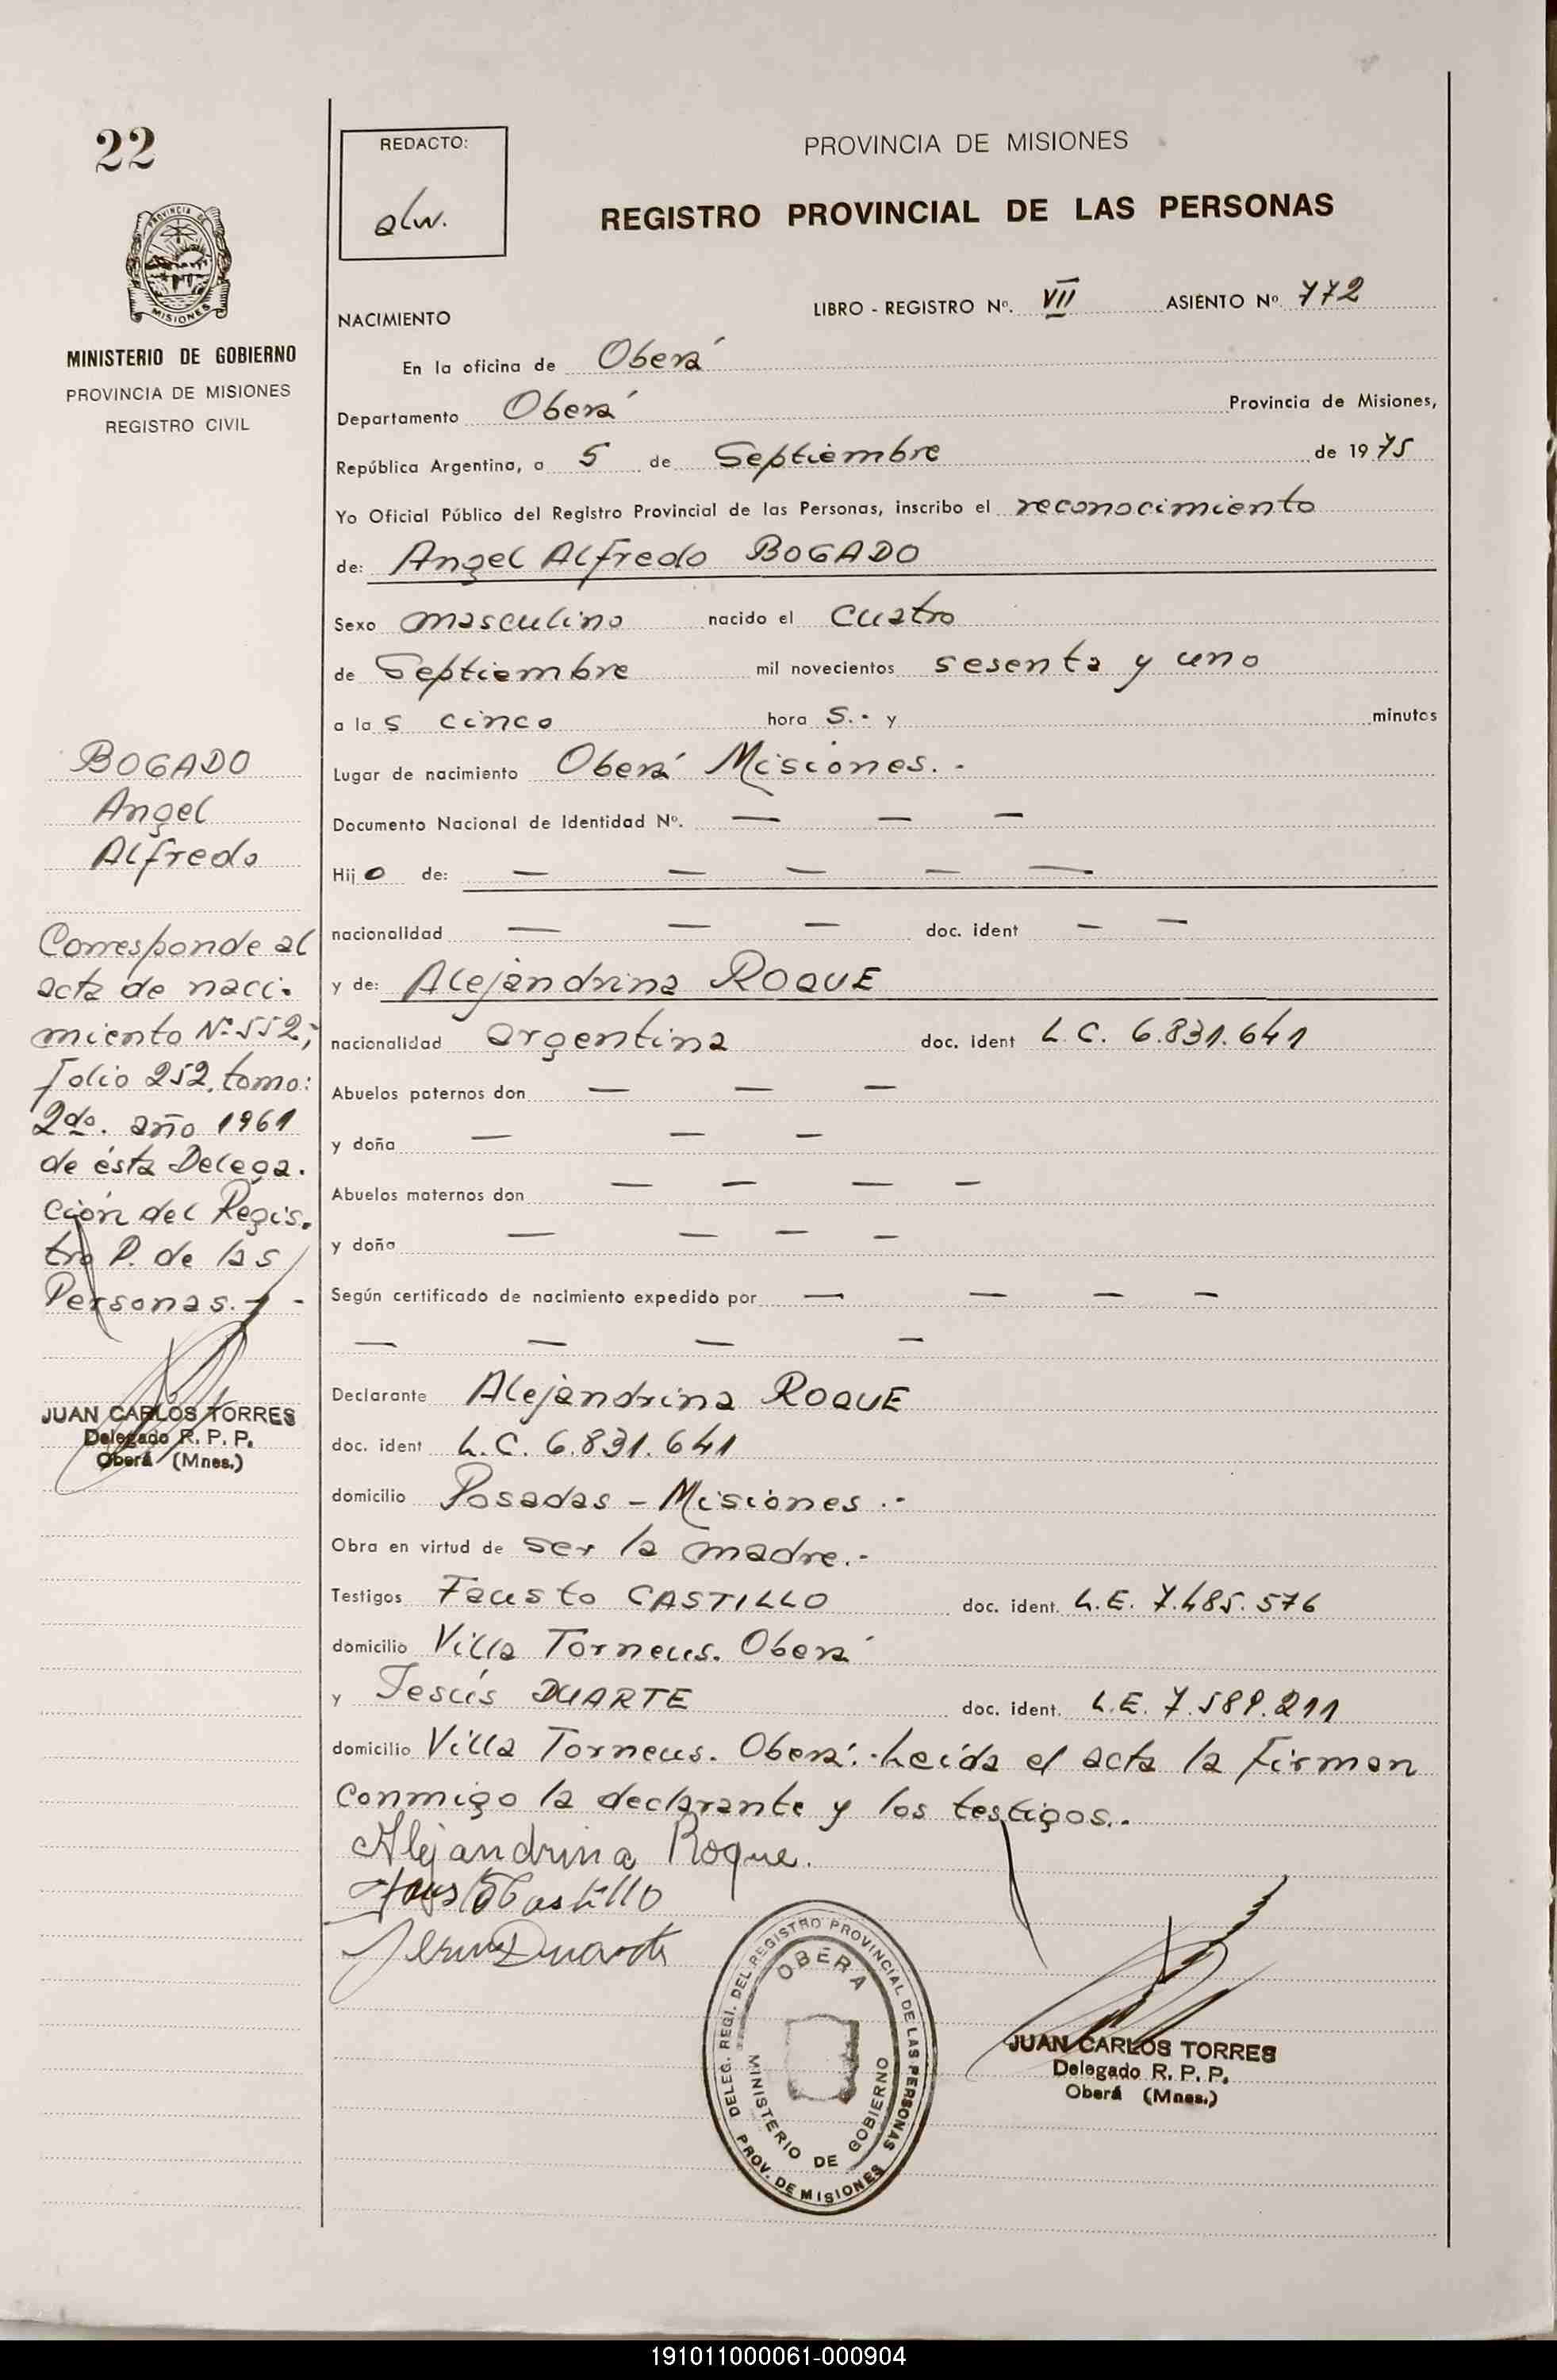 22
PROVINCIA DE
MISIONES
MINISTERIO DE GOBIERNO
PROVINCIA DE MISIONES
REGISTRO CIVIL
BOGADO
Angel
Alfredo
Corresponde al
acta de naci-
miento Nº 552;
folio 252, tomo:
2do. año 1961
de ésta Delega-
ción del Regis-
tro P. de las
Personas.- -
JUAN CARLOS TORRES
Delegado R. P. P.
Oberá (Mnes.)
REDACTO:
alw.
PROVINCIA DE MISIONES
REGISTRO PROVINCIAL DE LAS PERSONAS
LIBRO - REGISTRO Nº. VII ASIENTO Nº. 772
NACIMIENTO
En la oficina de Oberá
Departamento Oberá Provincia de Misiones,
República Argentina, a 5 de Septiembre de 1975
Yo Oficial Público del Registro Provincial de las Personas, inscribo el reconocimiento
de: Angel Alfredo BOGADO
Sexo masculino nacido el cuatro
de Septiembre mil novecientos sesenta y uno
a las cinco hora s.- y minutos
Lugar de nacimiento Oberá Misiones. -
Documento Nacional de Identidad Nº. — — —
Hijo de: — — — — —
nacionalidad — — — doc. ident — —
y de: Alejandrina ROQUE
nacionalidad argentina doc. ident L.C. 6.831.641
Abuelos paternos don — — —
y doña — — —
Abuelos maternos don — — — —
y doña — — — —
Según certificado de nacimiento expedido por — — — —
— — — —
Declarante Alejandrina ROQUE
doc. ident L.C. 6.831.641
domicilio Posadas - Misiones .-
Obra en virtud de ser la madre.-
Testigos Fausto CASTILLO doc. ident. L.E. 7.485.576
domicilio Villa Torneus. Oberá
y Jesús DUARTE doc. ident. L.E. 7.589.211
domicilio Villa Torneus. Oberá.- Leída el acta la firman
conmigo la declarante y los testigos..
Alejandrina Roque.
Fausto Castillo
Jesus Duarte
DELEG. REGI. DEL REGISTRO PROVINCIAL DE LAS PERSONAS
OBERA
MINISTERIO DE GOBIERNO
PROV. DE MISIONES
JUAN CARLOS TORRES
Delegado R. P. P.
Oberá (Mnes.)
191011000061-000904